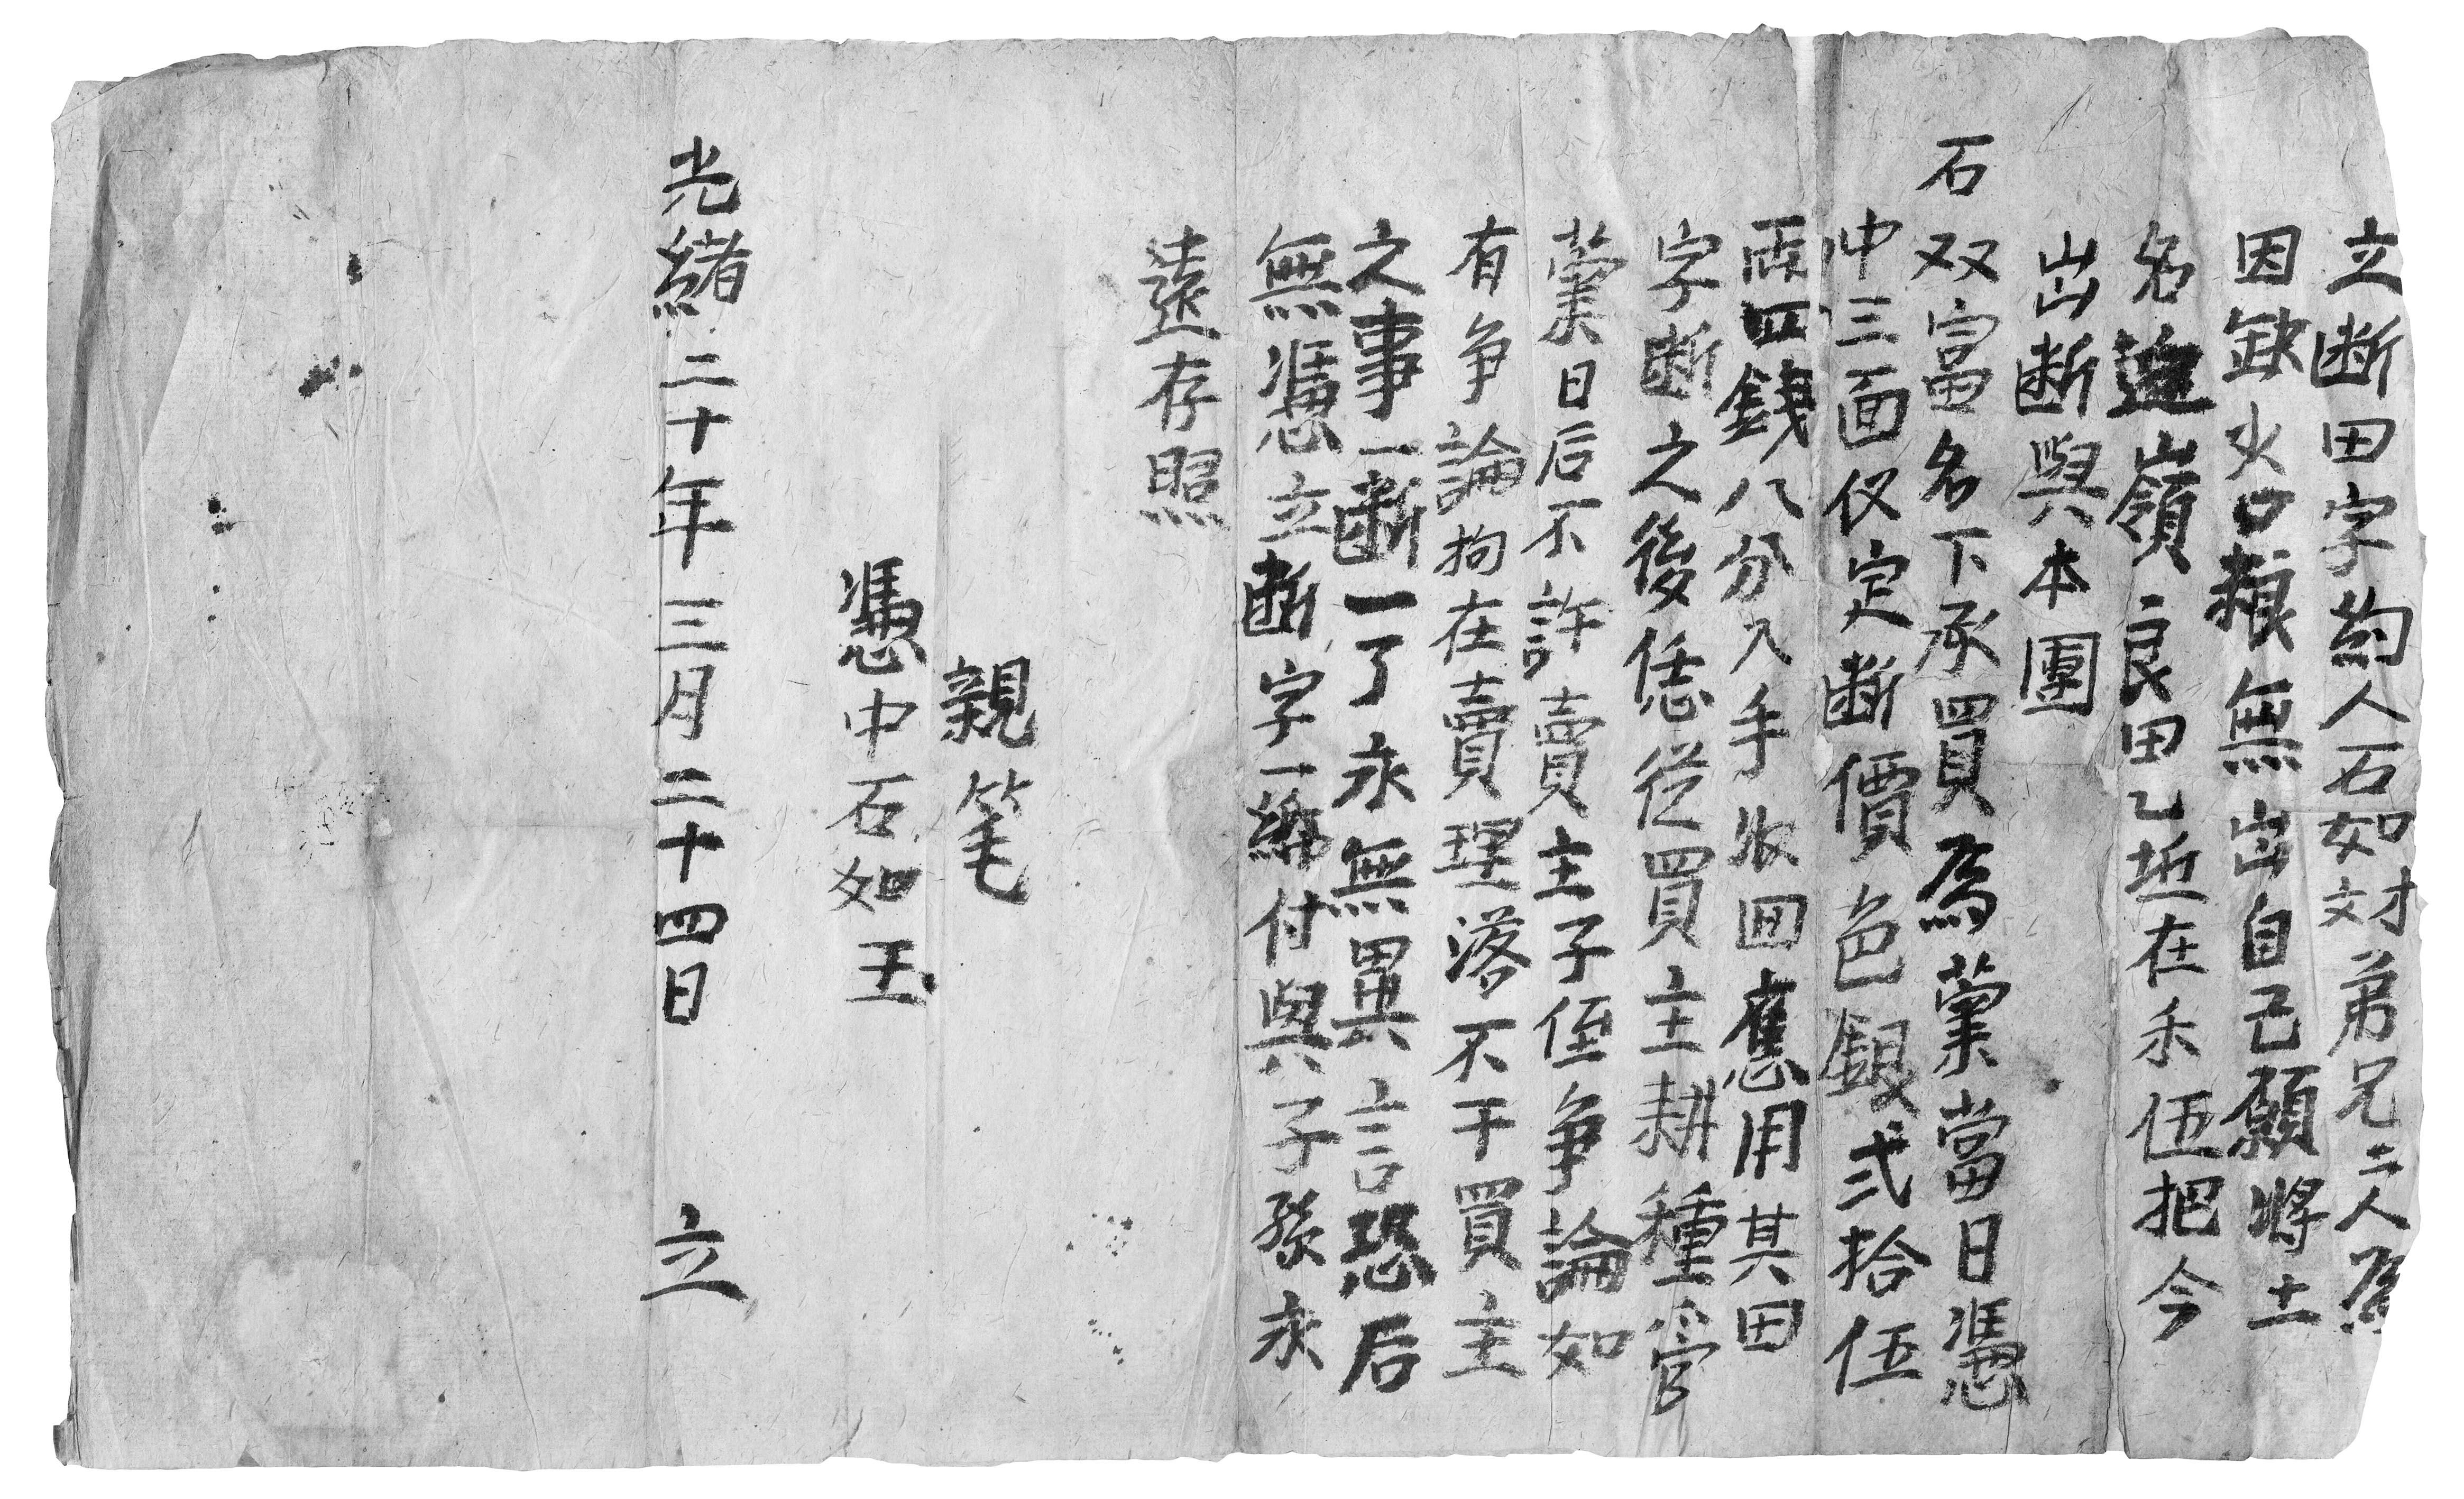 立断田字約人石如対弟兄二人為
因缺火口粮無出自己願將土
名𨑳嶺良田乙坵在禾伍把今
出断與本團
石双富名下承買為業當日憑
中三面仅定断價色銀弍拾伍
両四錢八分入手收回應用其田
字断之後恁從買主耕種管
業日后不許賣主子侄争論如
有争論拘在賣理落不干買主
之事一断一了永無異言恐后
無憑立断字一紙付與子孫永
遠存照
親笔
憑中石如玉
光緒二十年三月二十四日 立